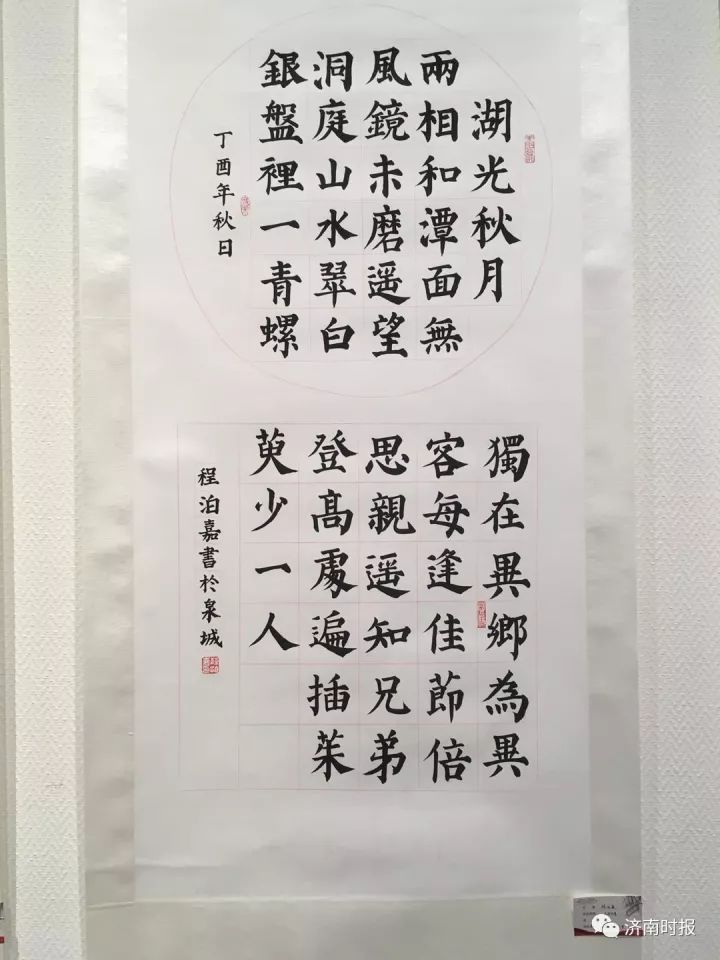 湖光秋月
兩相和潭面無
風鏡未磨遥望
洞庭山水翠白
銀盤裡一青螺
丁酉年秋日
獨在異鄉為異
客每逢佳節倍
思親遥知兄弟
登髙處遍插茱
萸少一人
程泊嘉書於泉城
济南时报